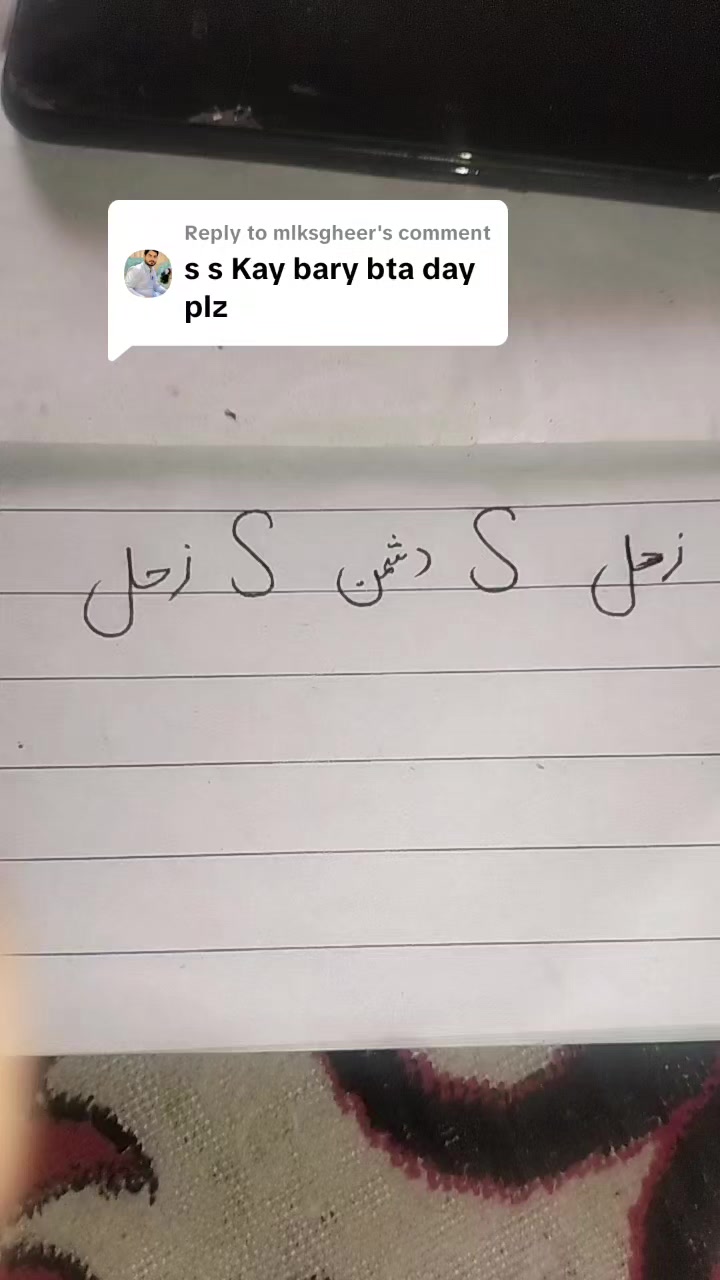 Reply to mlksgheer's comment
s s Kay bary bta day
plz
زحل S دشمن S زحل